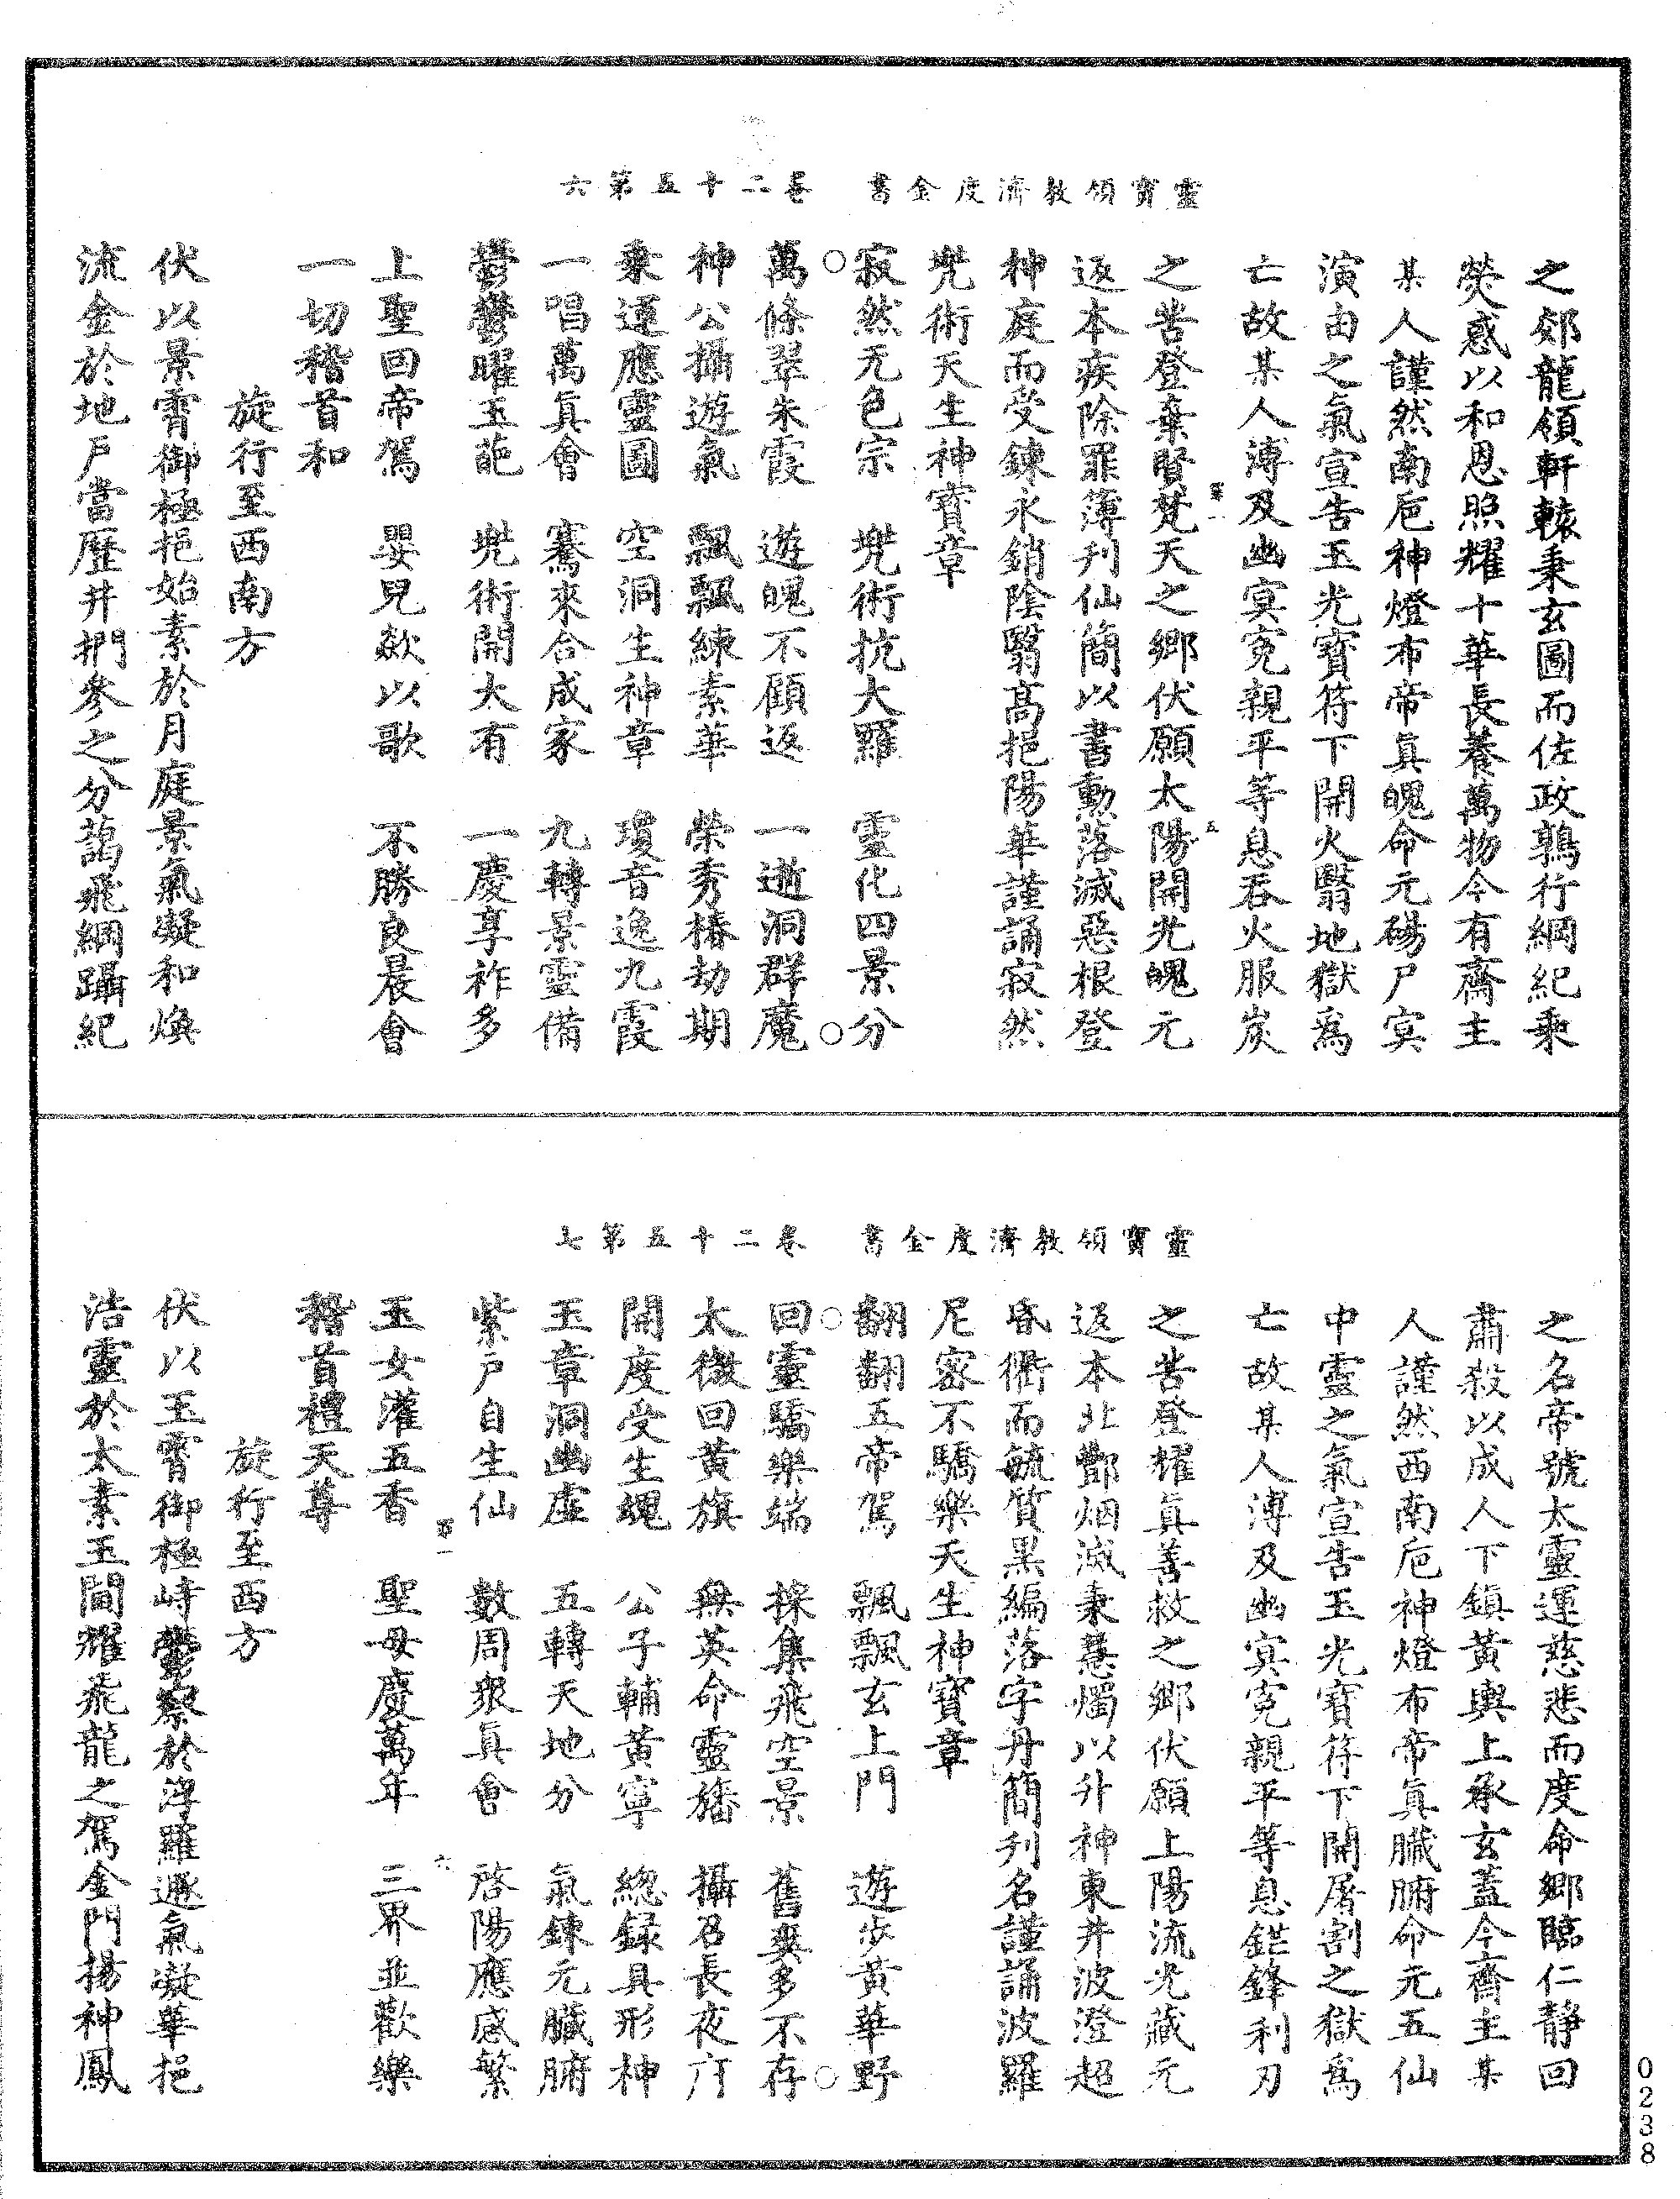 靈寶領教濟度金書　卷二十五第六
之郊龍領軒轅秉玄圖而佐政鶉行綱紀乘
熒惑以和恩照耀十華長養萬物今有齋主
某人謹然南卮神燈布帝真魄命元碭尸宾
演由之氣宣告玉光寶符下開火翳地獄爲
亡故某人溥及幽宾寃親平等息吞火服炭
之苦登棄賢梵天之鄉伏願太陽開光魄元
返本疾除罪簿刋仙簡以書勲落滅惡根登
神庭而受鍊永銷陰翳髙挹陽華謹誦寂然
兠術天生神寶章
寂然无色宗　兠術抗大羅　靈化四景分
萬條翠朱霞　遊魄不顧返　一逝洞群魔
神公攝遊氣　飄飄練素華　榮秀椿劫期
乘運應靈圖　空洞生神章　瓊音逸九霞
一唱萬真會　騫來合成家　九轉景靈備
鬱鬱曜玉葩　兠術開大有　一慶享祚多
上聖回帝駕　嬰兒歘以歌　不勝良晨會
一切稽首和
旋行至西南方
伏以景霄御極挹始素於月庭景氣凝和煥
流金於地戸當歴井捫參之分藹飛綱躡紀
靈寶領教濟度金書　卷二十五第七
之名帝號太靈運慈悲而度命鄉臨仁静回
肅殺以成人下鎮黃輿上承玄蓋今齋主某
人謹然西南卮神燈布帝真臟腑命元五仙
中靈之氣宣告玉光寶符下開屠割之獄爲
亡故某人溥及幽宾寃親平等息鋩鋒利刃
之苦登耀真善救之鄉伏願上陽流光藏元
返本北酆烟滅秉慧燭以升神東井波澄超
昏衢而毓質黒編落字丹簡刋名謹誦波羅
尼宻不驕樂天生神寶章
翻翻五帝駕　飄飄玄上門　遊步黄華野
回靈驕樂端　採集飛空景　舊爽多不存
太微回黄旗　無英命靈旛　攝召長夜府
開度受生魂　公子輔黄寧　總録具形神
玉章洞幽虛　五轉天地分　氣鍊元臟腑
紫戸自生仙　數周衆真會　啓陽應感繁
玉女灌五香　聖母慶萬年　三界並歡樂
稽首禮天尊
旋行至西方
伏以玉霄御極峙鬱察於浮羅遯氣凝華挹
浩靈於太素玉閶耀飛龍之駕金門揚神鳳
0238